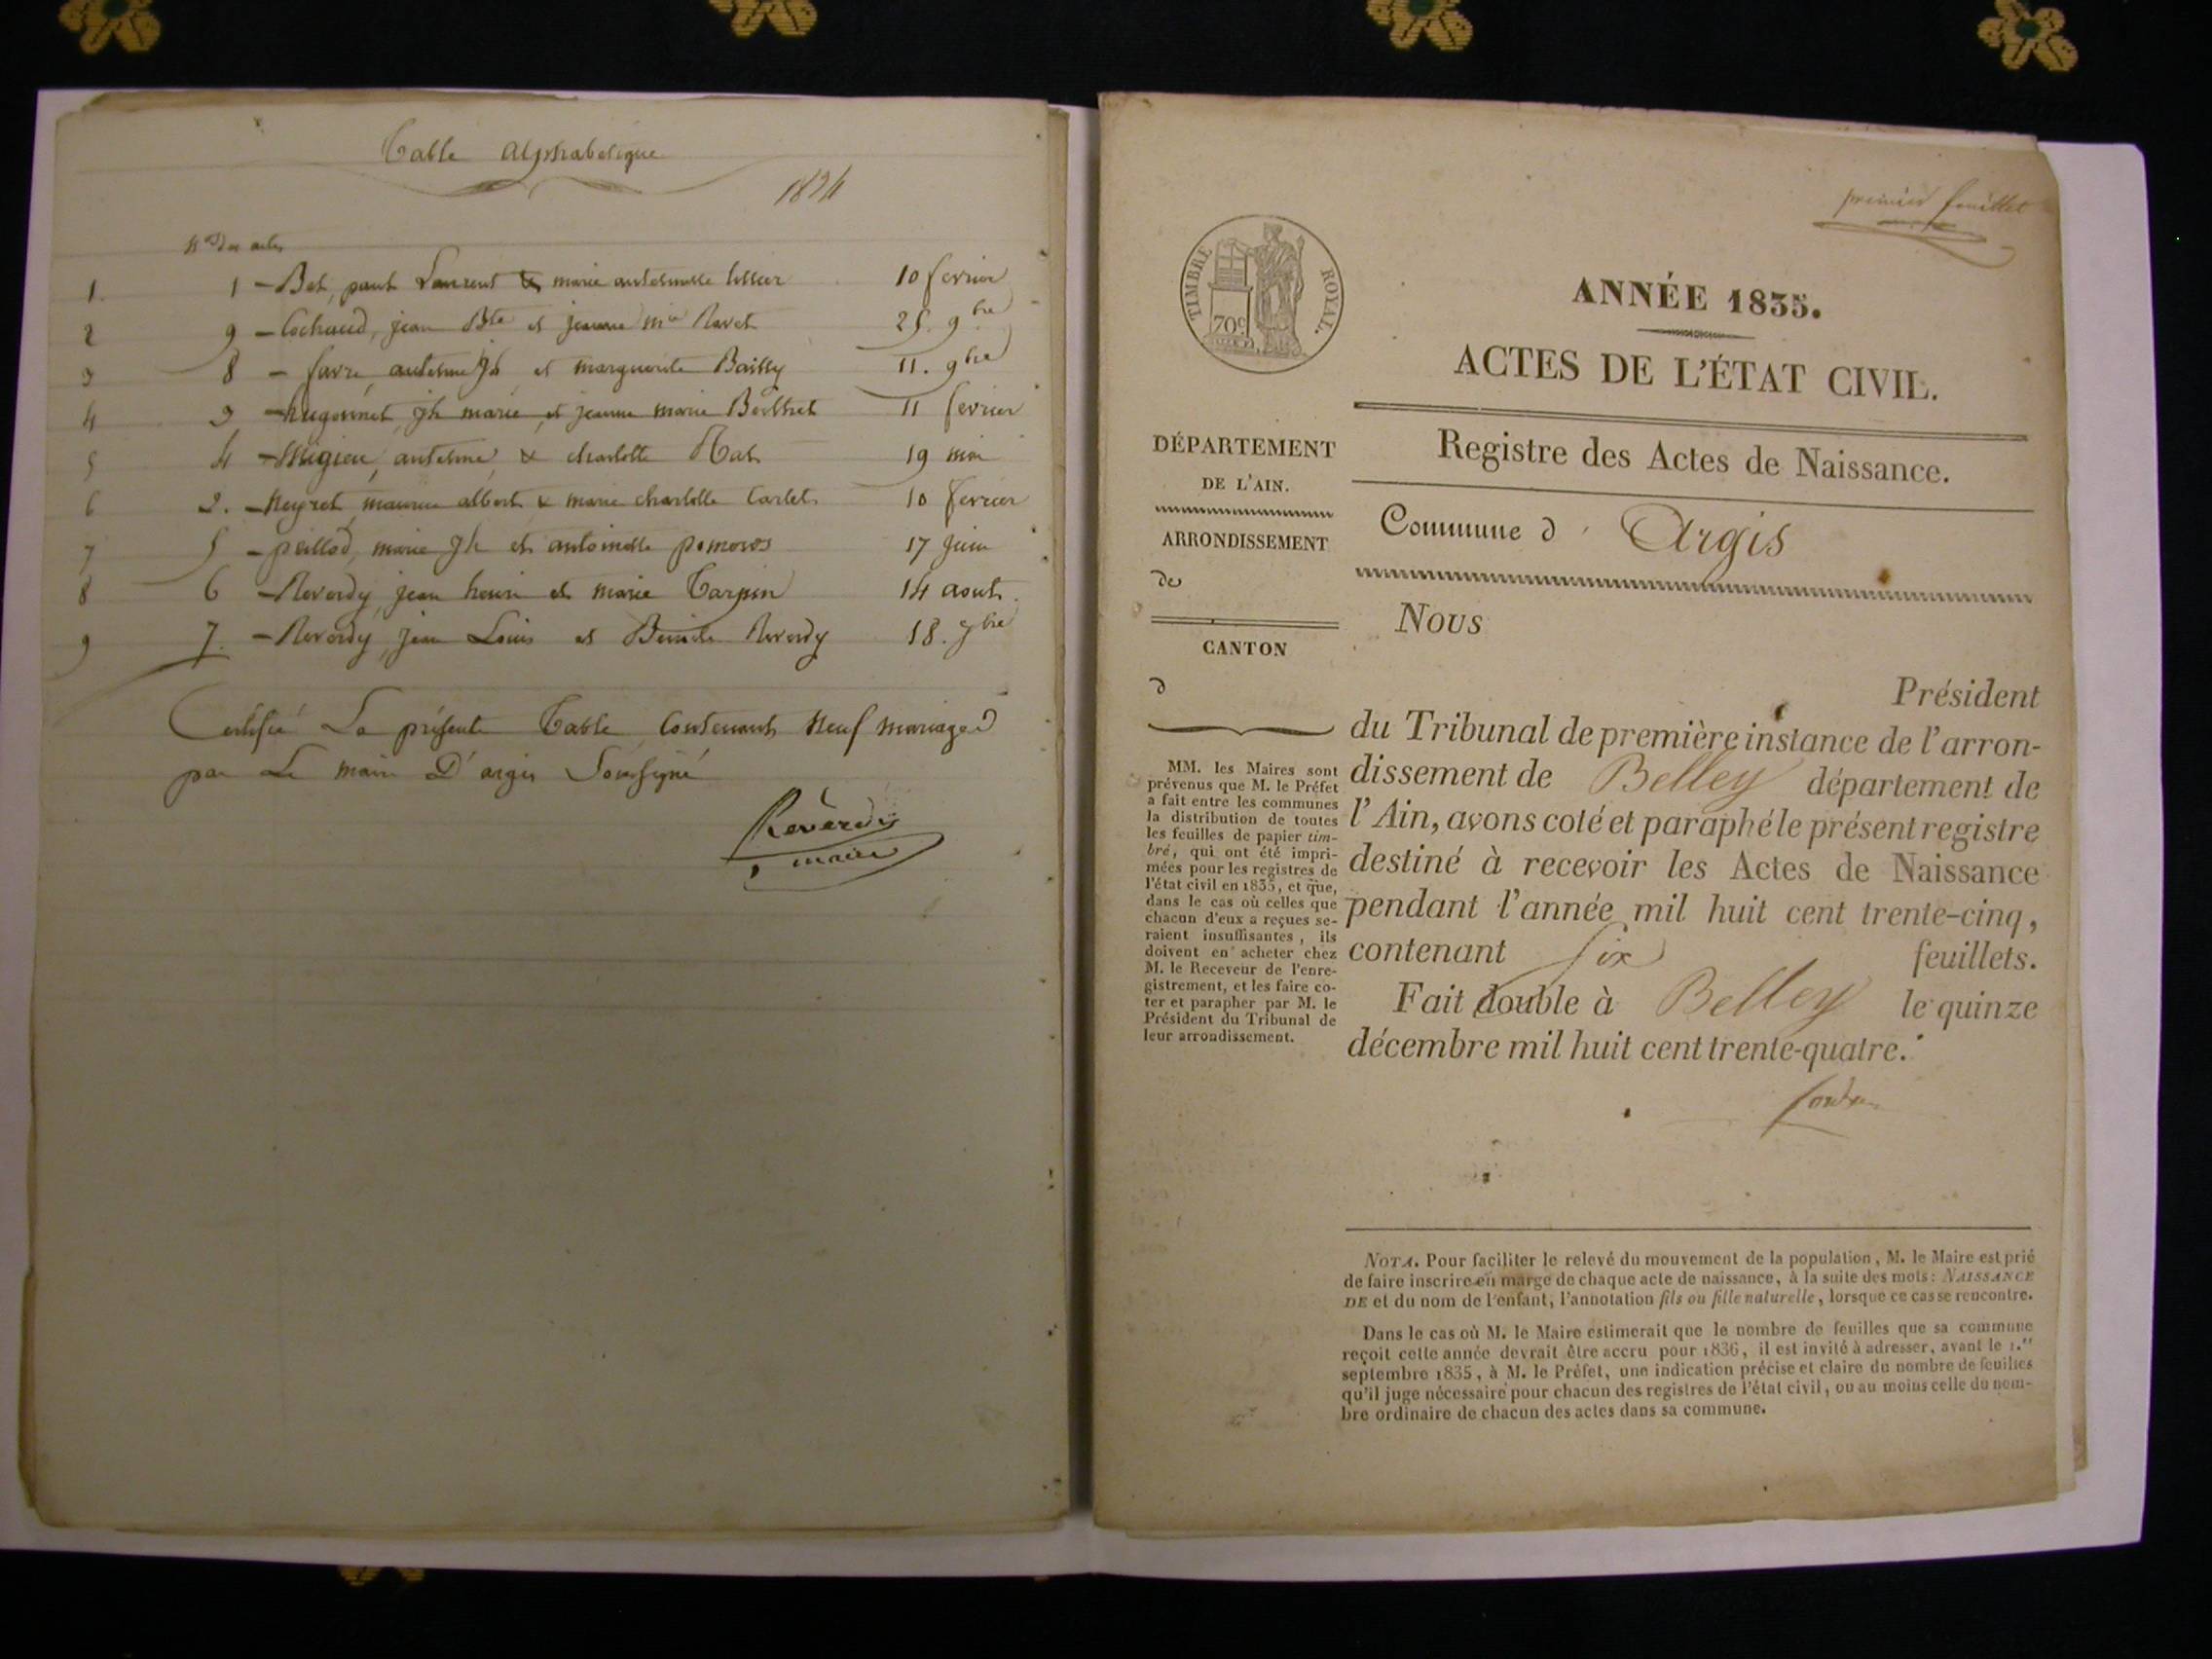 Table alphabétique
1834
Nos des actes
1. 1 - Bet, paul Laurent & marie anthelmette
2 9 - Cochaud, jean Bte et jeanne mie Ravet 25. 9bre
3 8 - favre anthelme jh et marguerite Bailly 11. 9bre
4 3 - hugonnet, jh marie, et jeanne marie Berthet 11 fevrier
5 4 - Migieu, anthelme, & charlotte 19 mai
6 2. - Neyret maurice albert & marie charlotte Carlet 10 fevrier
7 5 - peillod, marie jh et antoinette 17 juin
8 6 - Reverdy, jean henri et marie Tarpin 14 aout.
9 7. - Reverdy, jean Louis et Reverdy 18.
Certifié La présente Table Contenant Neuf mariages
par Le maire D'argis Soussigné
Reverdy
maire
premier feuillet
TIMBRE ROYAL.
70c
ANNÉE 1835.
ACTES DE L'ÉTAT CIVIL.
Registre des Actes de Naissance.
Commune d' Argis
DÉPARTEMENT
DE L'AIN.
ARRONDISSEMENT
de
CANTON
d
MM. les Maires sont
prévenus que M. le Préfet
a fait entre les communes
la distribution de toutes
les feuilles de papier tim-
bré, qui ont été impri-
mées pour les registres de
l'état civil en 1835, et que,
dans le cas où celles que
chacun d'eux a reçues se-
raient insuffisantes, ils
doivent en acheter chez
M. le Receveur de l'enre-
gistrement, et les faire co-
ter et parapher par M. le
Président du Tribunal de
leur arrondissement.
Nous
Président
du Tribunal de première instance de l'arron-
dissement de Belley département de
l'Ain, avons coté et paraphé le présent registre
destiné à recevoir les Actes de Naissance
pendant l'année mil huit cent trente-cinq,
contenant Six feuillets.
Fait double à Belley le quinze
décembre mil huit cent trente-quatre.
NOTA. Pour faciliter le relevé du mouvement de la population, M. le Maire est prié
de faire inscrire en marge de chaque acte de naissance, à la suite des mots: NAISSANCE
DE et du nom de l'enfant, l'annotation fils ou fille naturelle, lorsque ce cas se rencontre.
Dans le cas où M. le Maire estimerait que le nombre de feuilles que sa commune
reçoit cette année devrait être accru pour 1836, il est invité à adresser, avant le 1.er
septembre 1835, à M. le Préfet, une indication précise et claire du nombre de feuilles
qu'il juge nécessaire pour chacun des registres de l'état civil, ou au moins celle du nom-
bre ordinaire de chacun des actes dans sa commune.